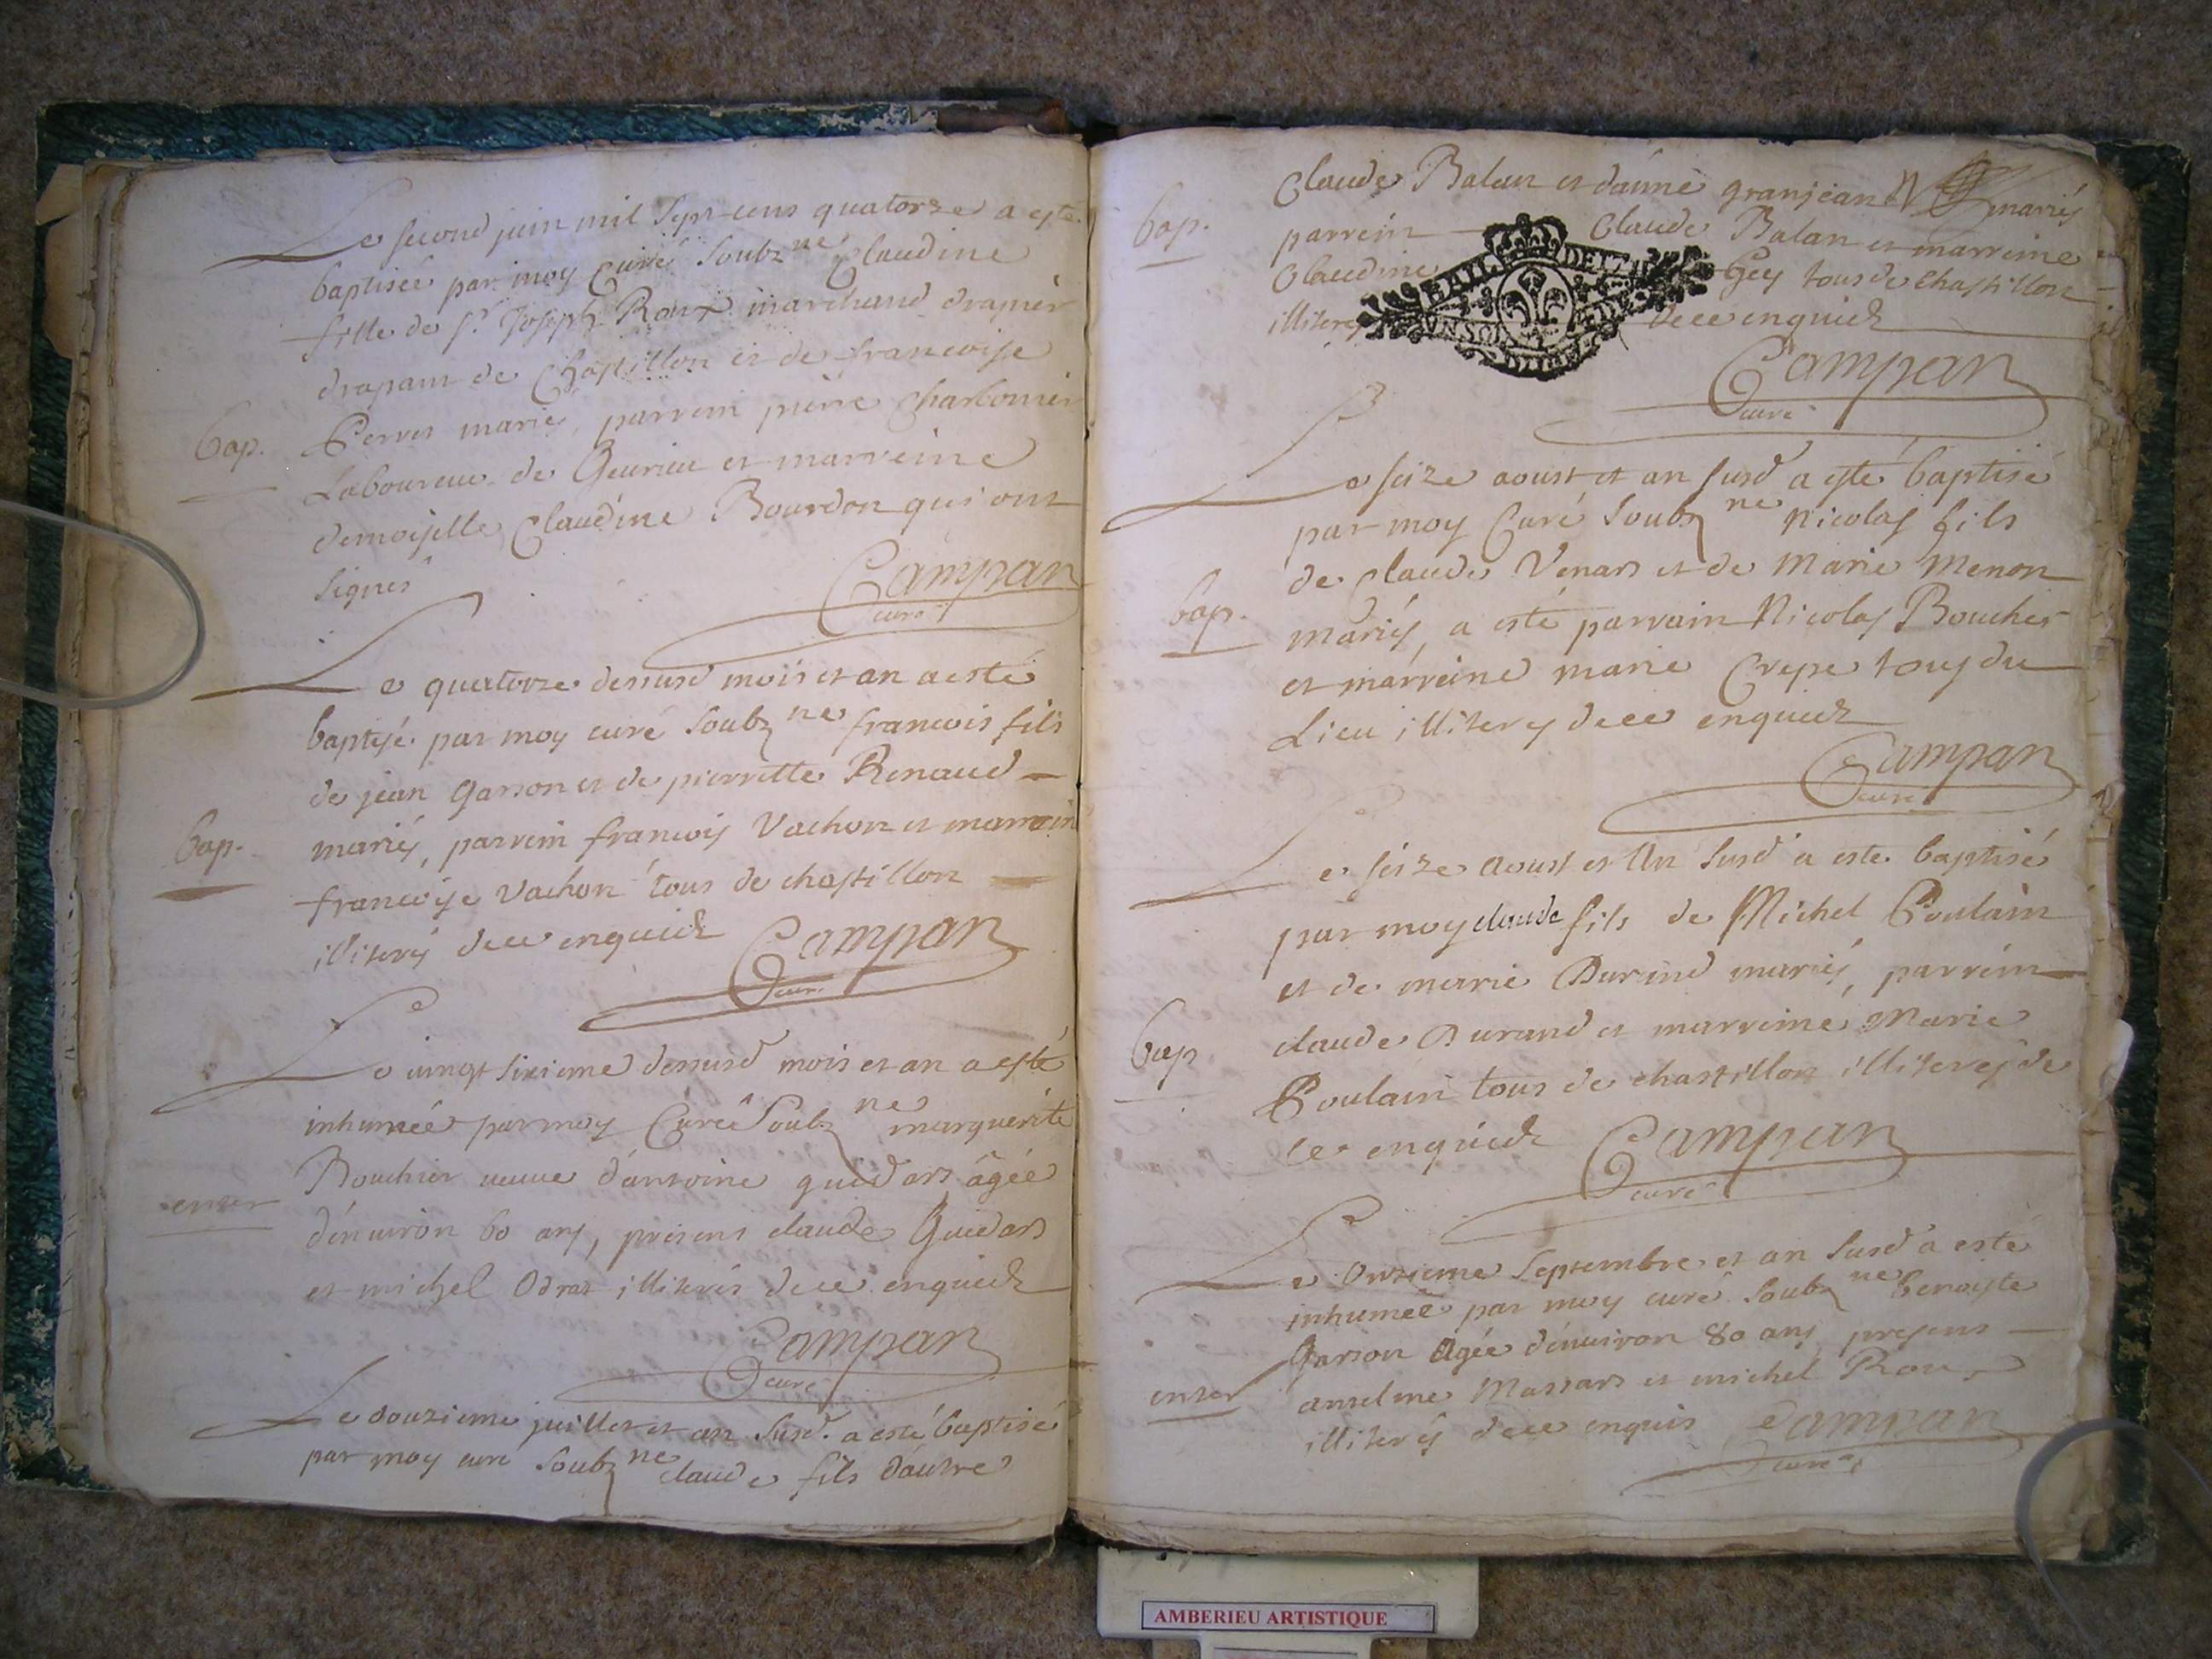 Le second juin mil sept cens quatorze a esté
baptisée par moy curé soubzne Claudine
fille de Sr Joseph Roux marchand drapier
drapant de Chastillon et de francoise
bap. Perret mariés, parrein pierre Charbonier
Laboureur de Geurieu et marreine
demoiselle Claudine Bourdon qui ont
signés Campan
curé
Le quatorze dessusd mois et an a esté
baptisé par moy curé soubzne francois fils
de jean Garson et de pierrette Renaud
bap. mariés, parrein francois Vachon et marrein
francoise Vachon tous de chastillon
illiterés de ce enquiets Campan
curé
Le vingt sixieme dessusd mois et an a esté
inhumée par moy Curé soubzne marguerite
enter Bouchier veuve d'antoine guidars âgée
d'environ 60 ans, presens claude Guidars
et michel Odras illiterés de ce enquiets
Campan
curé
Le douzieme juillet et an susd. a esté baptisé
par moy curé soubzne claude fils d'autre
Claude Balan et d'anne granjean mariés
bap. parrein Claude Balan et marreine
Claudine Gey tous de Chastillon
illiterés de ce enquiets
Campan
curé
Le seize aoust et an susd a esté baptisé
par moy Curé soubzne Nicolas fils
de Claude Venars et de Marie Menon
bap. mariés, a esté parrain Nicolas Boucher
et marreine marie Crepe tous du
Lieu illiterés de ce enquiets
Campan
curé
Le seize aoust et an susd a esté baptisé
par moy claude fils de Michel Poulain
et de marie Durand mariés, parrein
bap claude Durand et marreine Marie
Poulain tous de chastillon illiterés de
ce enquiets Campan
curé
Le Onzieme Septembre et an susd a esté
inhumée par moy curé soubzne benoiste
Garson agée d'environ 80 ans presens
enter anselme Massars et michel Roux
illiterés de ce enquis Campan
curé
AMBERIEU ARTISTIQUE